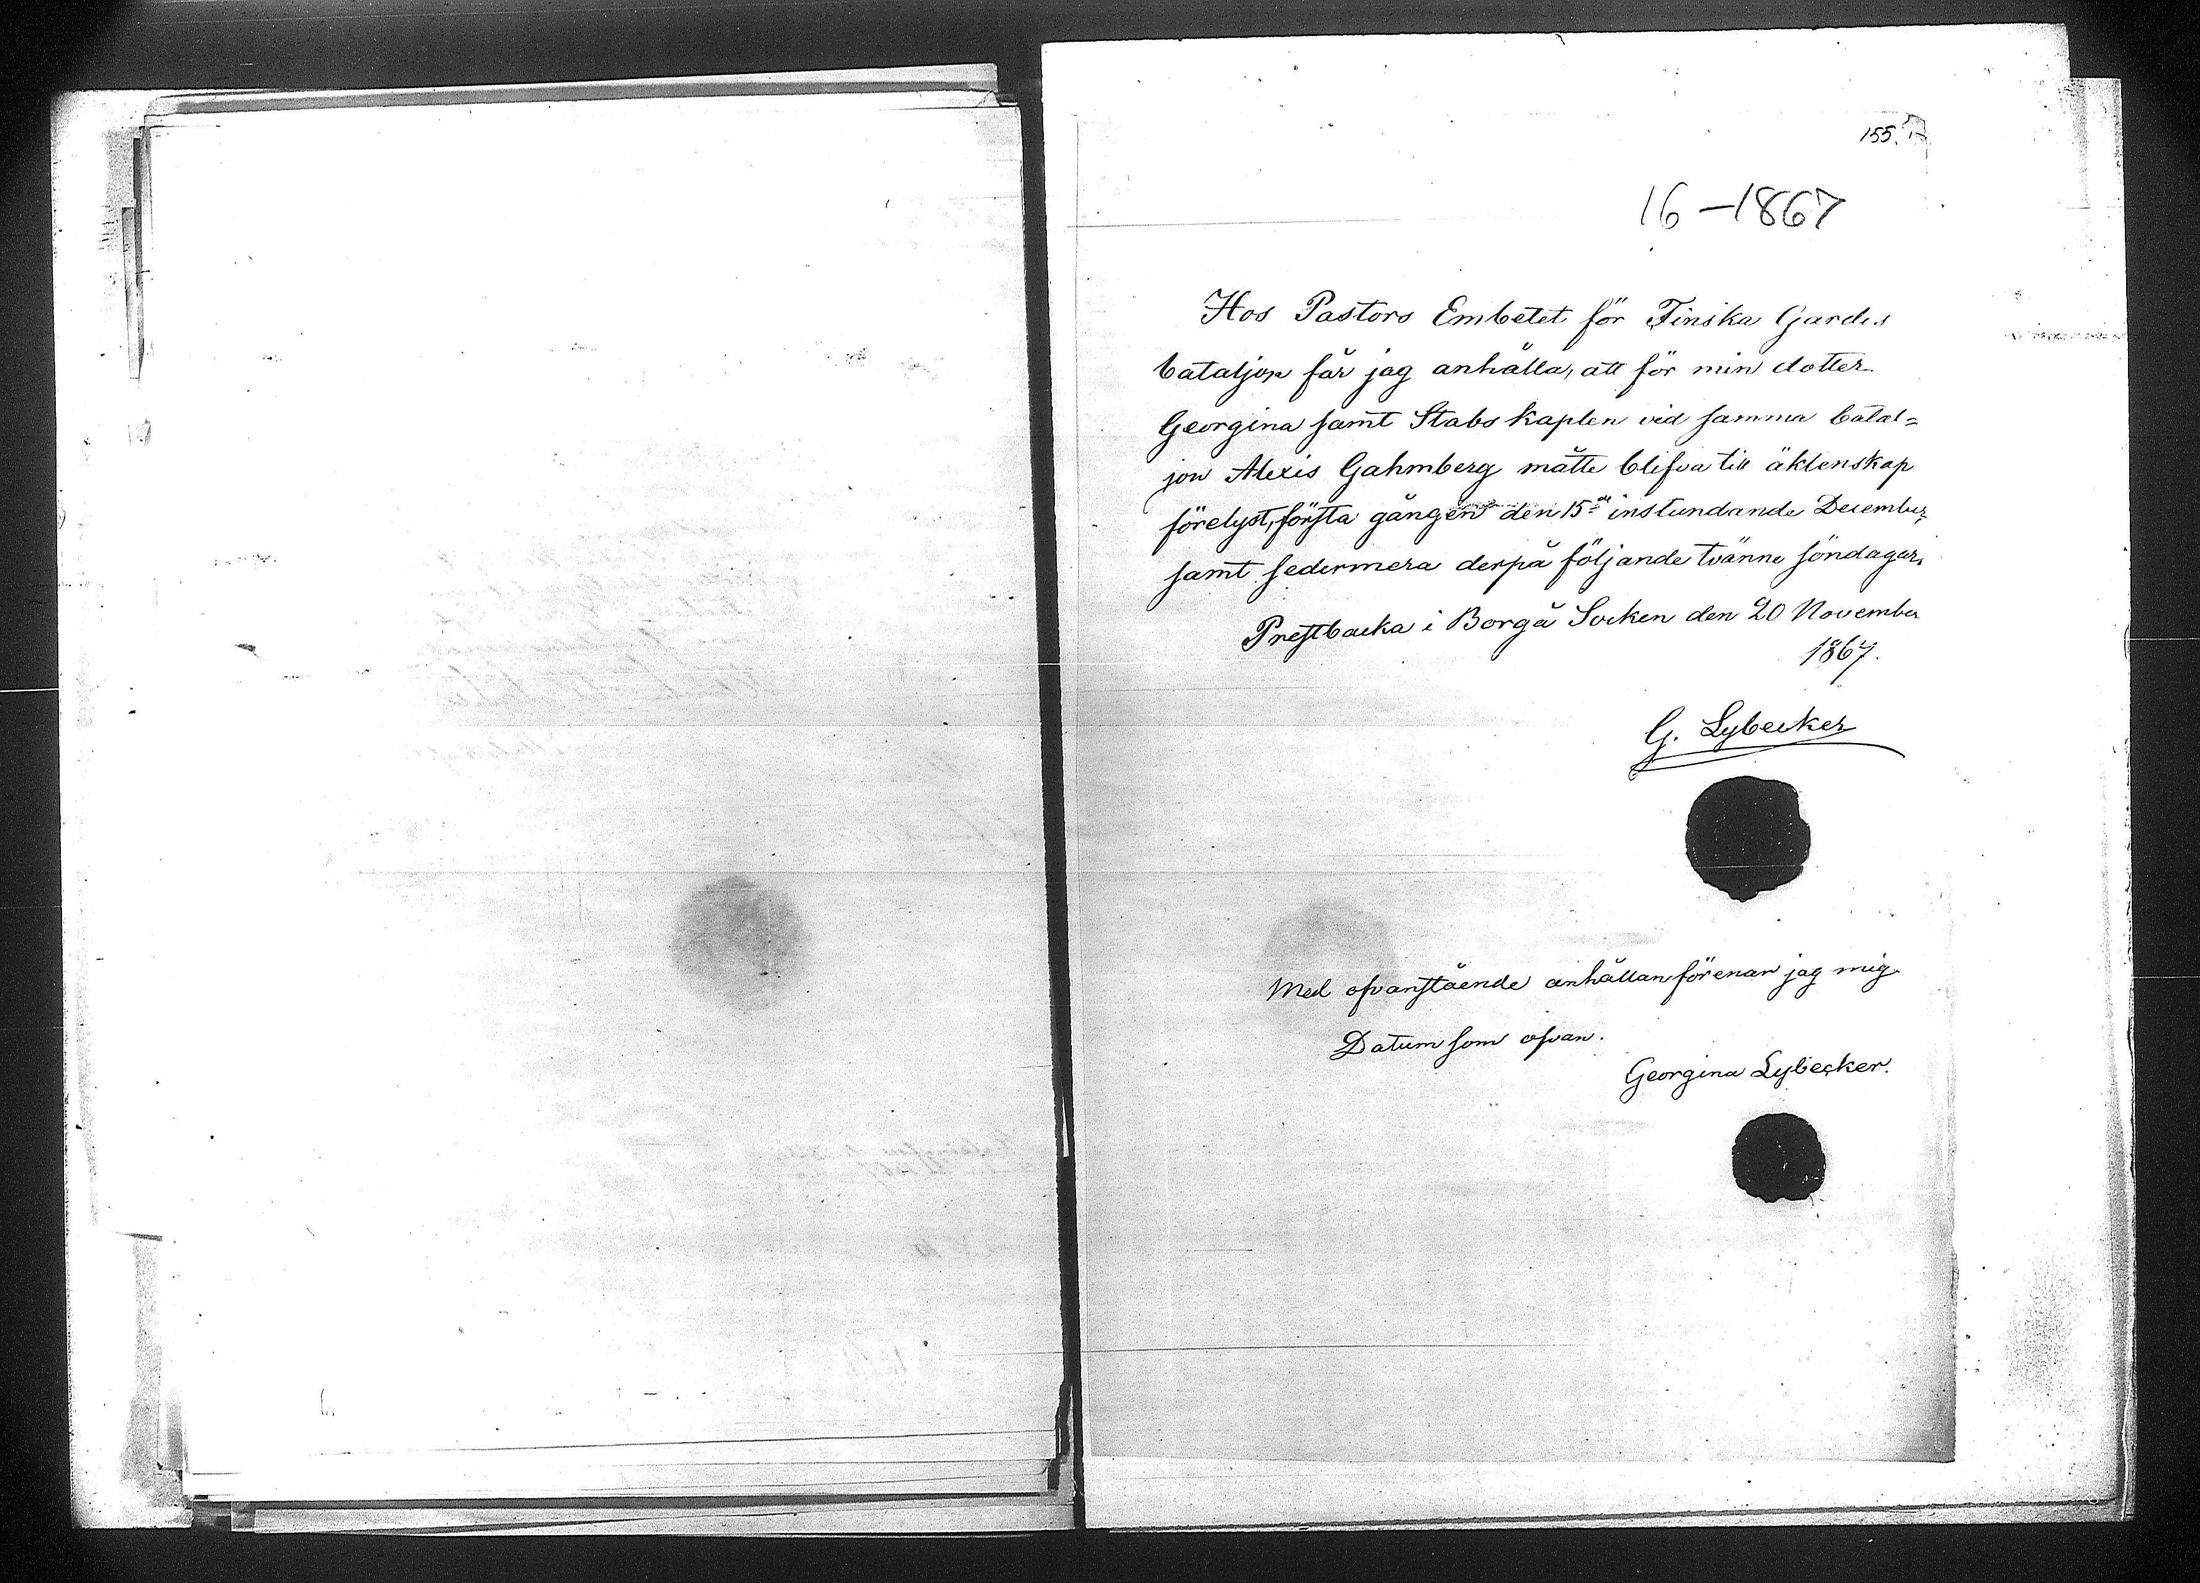 155.
16-1867
Hos Pastors Embetet för Finska Gardes
bataljon får jag anhålla, att för min dotter
Georgina samt Stabs kapten vid samma batal=
jon Alexis Gahmberg måtte blifva till äktenskap
förelyst, första gången den 15de instundande December,
samt sedermera derpå följande tvänne söndagar.
Prestbacka i Borgå Socken den 20 November
1867.
G. Lybecker
Med ofvanstående anhållan förenar jag mig
Datum som ofvan.
Georgina Lybecker.